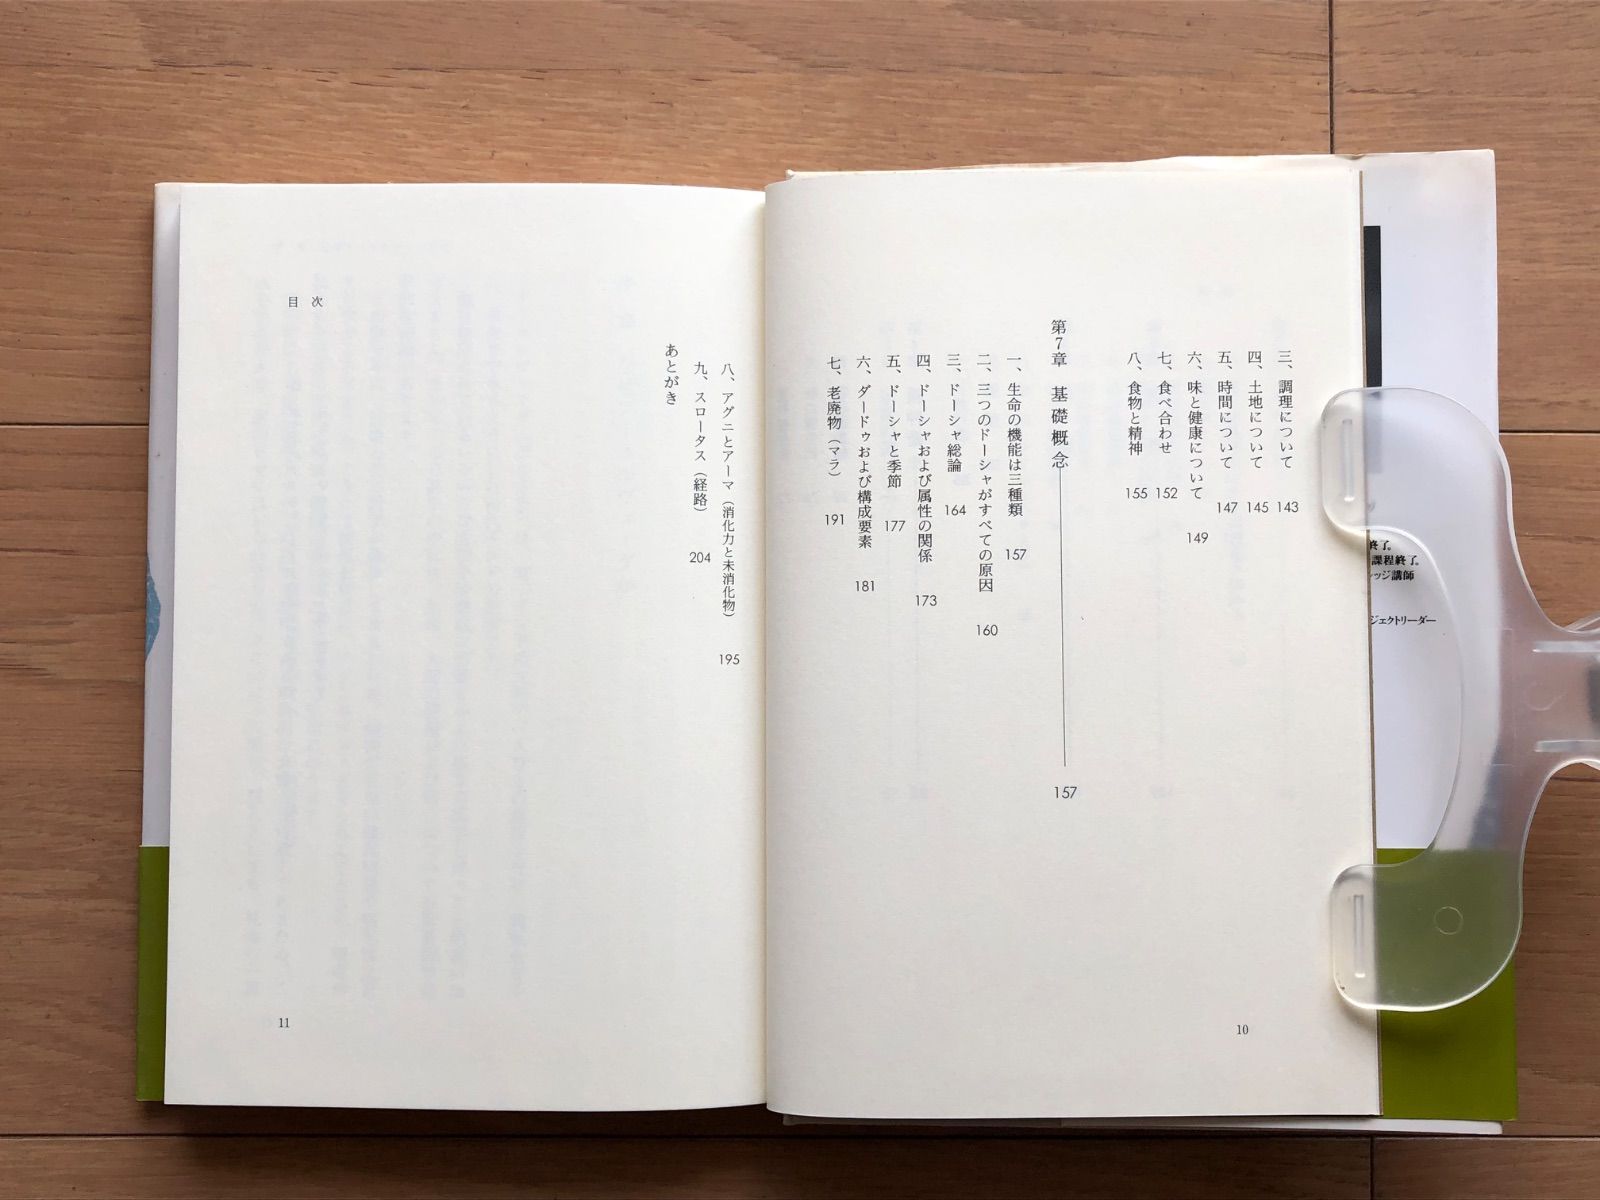 三、調理について 143
四、土地について 145
五、時間について 147
六、味と健康について 149
七、食べ合わせ 152
八、食物と精神 155
第7章 基礎概念 157
一、生命の機能は三種類 157
二、三つのドーシャがすべての原因 160
三、ドーシャ総論 164
四、ドーシャおよび属性の関係 173
五、ドーシャと季節 177
六、ダードゥおよび構成要素 181
七、老廃物(マラ) 191
10
八、アグニとアーマ(消化力と未消化物) 195
九、スロータス(経路) 204
あとがき
目次
11
終了。
課程終了。
ッジ講師
ジェクトリーダー